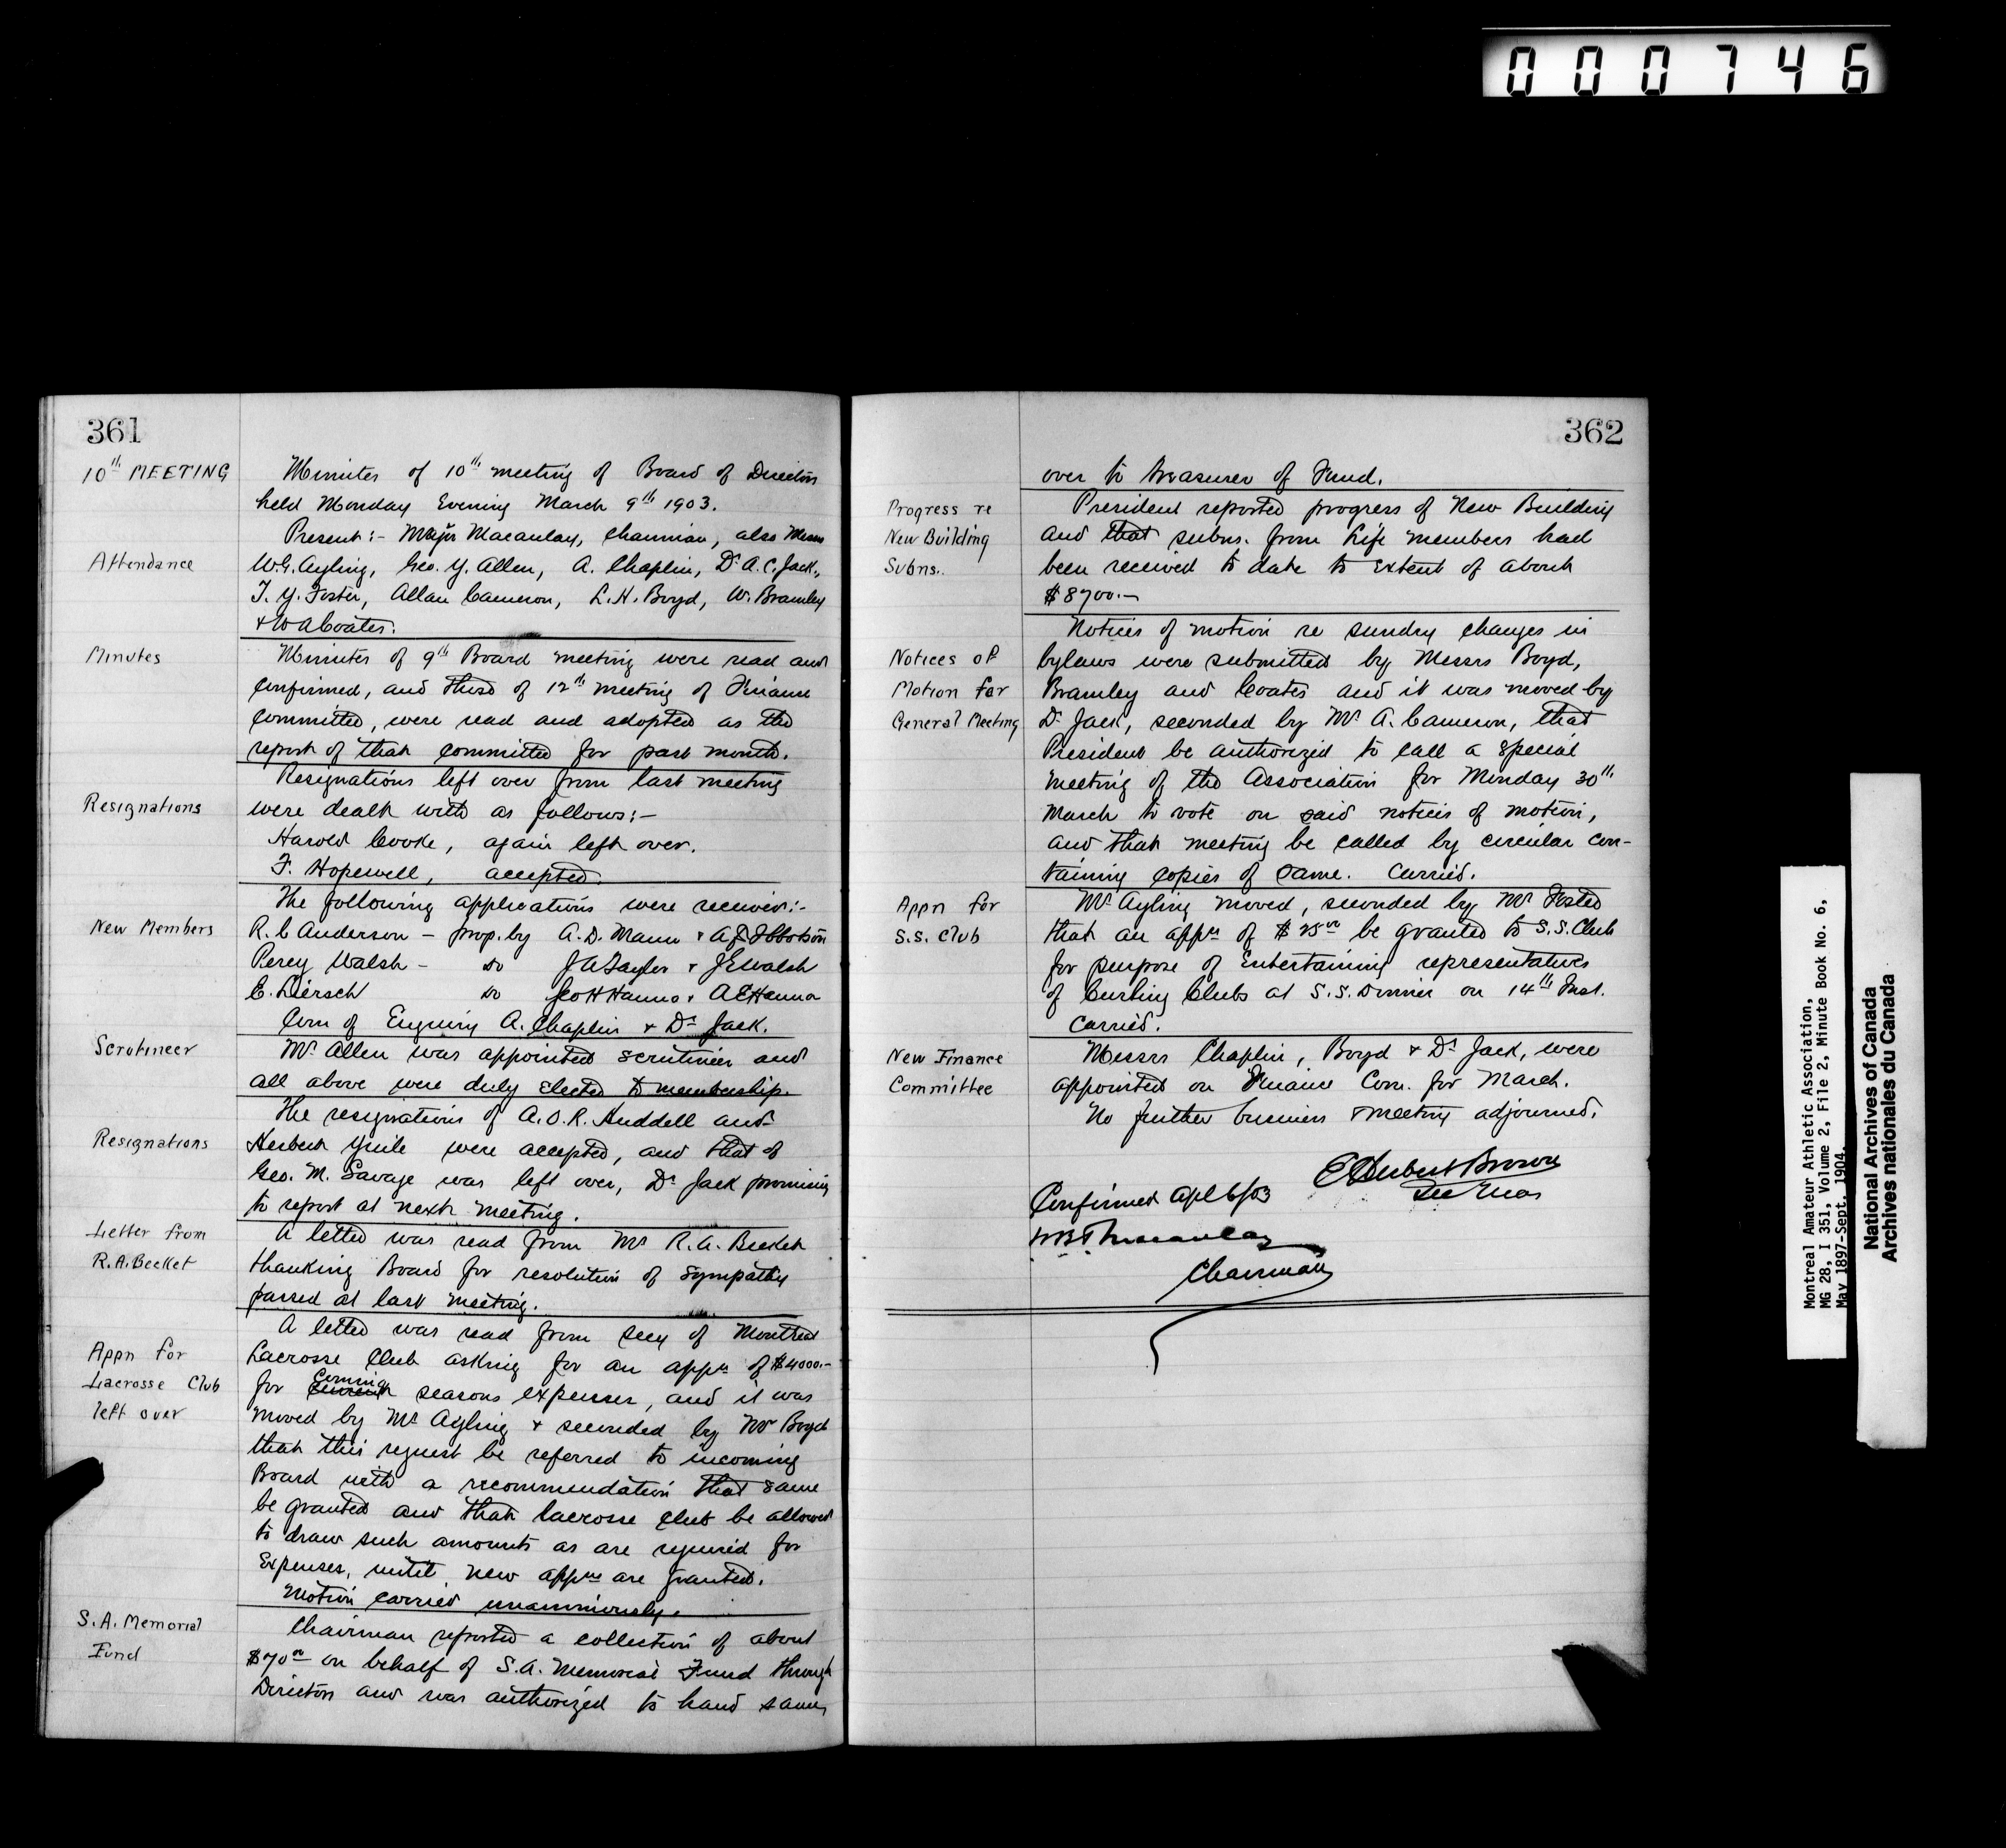 000746
361
10th MEETING
Minutes of 10th meeting of Board of Directors
held Monday Evening March 9th 1903.
Present:- Major Macaulay, Chairman, also Messrs
Attendance
W.G. Ayling, Geo. Y. Allen, A. Chaplin, Dr A.C. Jack,
T. Y. Foster, Allan Cameron, L.H. Boyd, W. Bramley
& W A Coates.
Minutes
Minutes of 9th Board meeting were read and
confirmed, and those of 12th meeting of Finance
Committee, were read and adopted as the
report of that committee for past month.
Resignations left over from last meeting
Resignations
were dealt with as follows:-
Harold Cooke, again left over.
F. Hopewell, accepted.
The following applications were received:-
New Members
R. C Anderson - prop. by A. D. Mann & A F Ibbotson
Percy Walsh - do J A Taylor & J E Walsh
C. Liersch do Geo H Hanna & A E Hanna
Com of Enquiry A. Chaplin & Dr Jack.
Scrutineer
Mr Allen was appointed scrutineer and
all above were duly elected to membership.
The resignations of A.O.R. Huddell and
Resignations
Herbert Yuile were accepted, and that of
Geo. M. Savage was left over, Dr Jack promising
to report at next meeting.
Letter from
R.A. Becket
A letter was read from Mr R.A. Becket
thanking Board for resolution of sympathy
passed at last meeting.
A letter was read from secy of Montreal
Appn for
Lacrosse Club
left over
Lacrosse Club asking for an appn of $4000.-
for Coming seasons expenses, and it was
moved by Mr Ayling & seconded by Mr Boyd
that this request be referred to incoming
Board with a recommendation that same
be granted and that Lacrosse Club be allowed
to draw such amounts as are required for
Expenses, until new appns are granted.
Motion carried unanimously.
S.A. Memorial
Fund
Chairman reported a collection of about
$70.00 on behalf of S.A. Memorial Fund through
Directors and was authorized to hand same
362
over to treasurer of Fund.
Progress re
New Building
Subns.
President reported progress of New Building
and that subns. from Life members had
been received to date to extent of about
$8700.-
Notices of motion re sundry changes in
Notices of
Motion for
General Meeting
bylaws were submitted by Messrs Boyd,
Bramley and Coates and it was moved by
Dr Jack, seconded by Mr A. Cameron, that
President be authorized to call a special
meeting of the Association for Monday 30th
March to vote on said notices of motion,
and that meeting be called by circular con-
taining copies of same. Carried.
Appn for
S.S. Club
Mr Ayling moved, seconded by Mr Foster
that an appn of $25.00 be granted to S.S. Club
for purpose of Entertaining representatives
of Curling Clubs at S.S. Dinner on 14th Inst.
Carried.
New Finance
Committee
Messrs Chaplin, Boyd & Dr Jack, were
appointed on Finance Com. for March.
No further business & meeting adjourned.
E Herbert Brown
Sec Treas
Confirmed Apl 6/03
Macaulay
Chairman
Montreal Amateur Athletic Association,
MG 28, I 351, Volume 2, File 2, Minute Book No. 6,
May 1897-Sept. 1904.
National Archives of Canada
Archives nationales du Canada